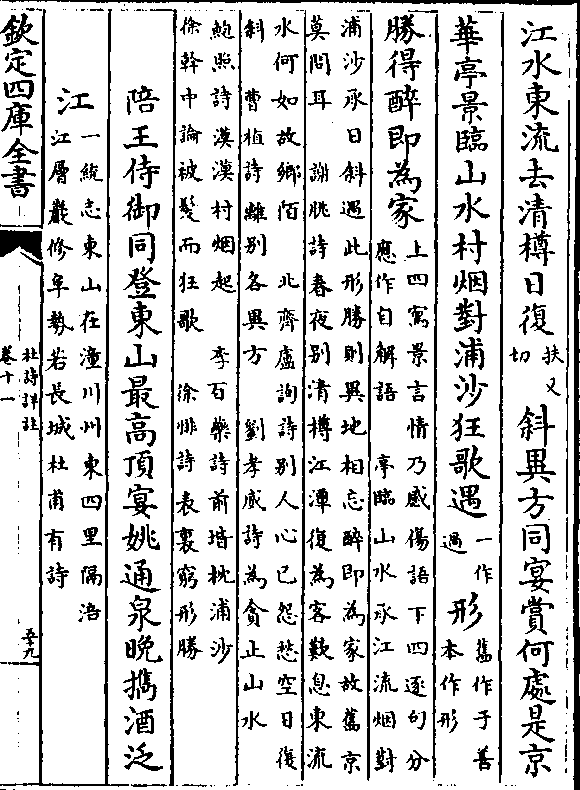 江水東流去清樽日復扶又切斜異方同宴賞何處是京
華亭景臨山水村烟對浦沙狂歌遇一作過形舊作于善本作形
勝得醉即為家上四寓景言情乃感傷語下四逐句分應作自解語 亭臨山水承江流烟對
浦沙承日斜遇此形勝則異地相忘醉即為家故舊京
莫問耳 謝朓詩春夜别清樽江潭復為客歎息東流
水何如故鄉陌 北齊盧詢詩别人心已怨愁空日復
斜 曹植詩離别各異方 劉孝威詩為貪止山水
鮑照詩漠漠村烟起 李百藥詩前堦枕浦沙
徐幹中論被髮而狂歌 徐悱詩表裏窮形勝
陪王侍御同登東山最高頂宴姚通泉晚擕酒泛
江一統志東山在潼川州東四里隔涪江層巖修阜勢若長城杜甫有詩
欽定四庫全書
杜詩詳註
卷十一
五九